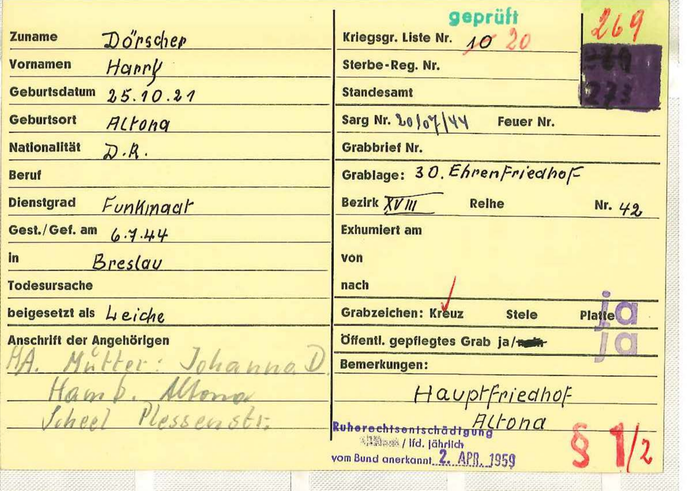 geprüft
269
Zuname Dörscher
Vornamen Harry
Geburtsdatum 25.10.21
Geburtsort Altona
Nationalität D.R.
Beruf
Dienstgrad Funkmaat
Gest./Gef. am 6.7.44
in Breslau
Todesursache
beigesetzt als Leiche
Anschrift der Angehörigen
Mutter: Johanna D.
Hamb. Altona
Scheel Plessenstr.
Kriegsgr. Liste Nr. 10 20
Sterbe-Reg. Nr.
273
Standesamt
Sarg Nr. 20/07/44 Feuer Nr.
Grabbrief Nr.
Grablage: 30. Ehrenfriedhof
Bezirk XVIII Reihe Nr. 42
Exhumiert am
von
nach
Grabzeichen: Kreuz Stele Platte ja
Öffentl. gepflegtes Grab ja/nein ja
Bemerkungen:
Hauptfriedhof
Altona
Ruherechtsentschädigung
/ lfd. jährlich
vom Bund anerkannt 2. APR. 1959
§ 1/2